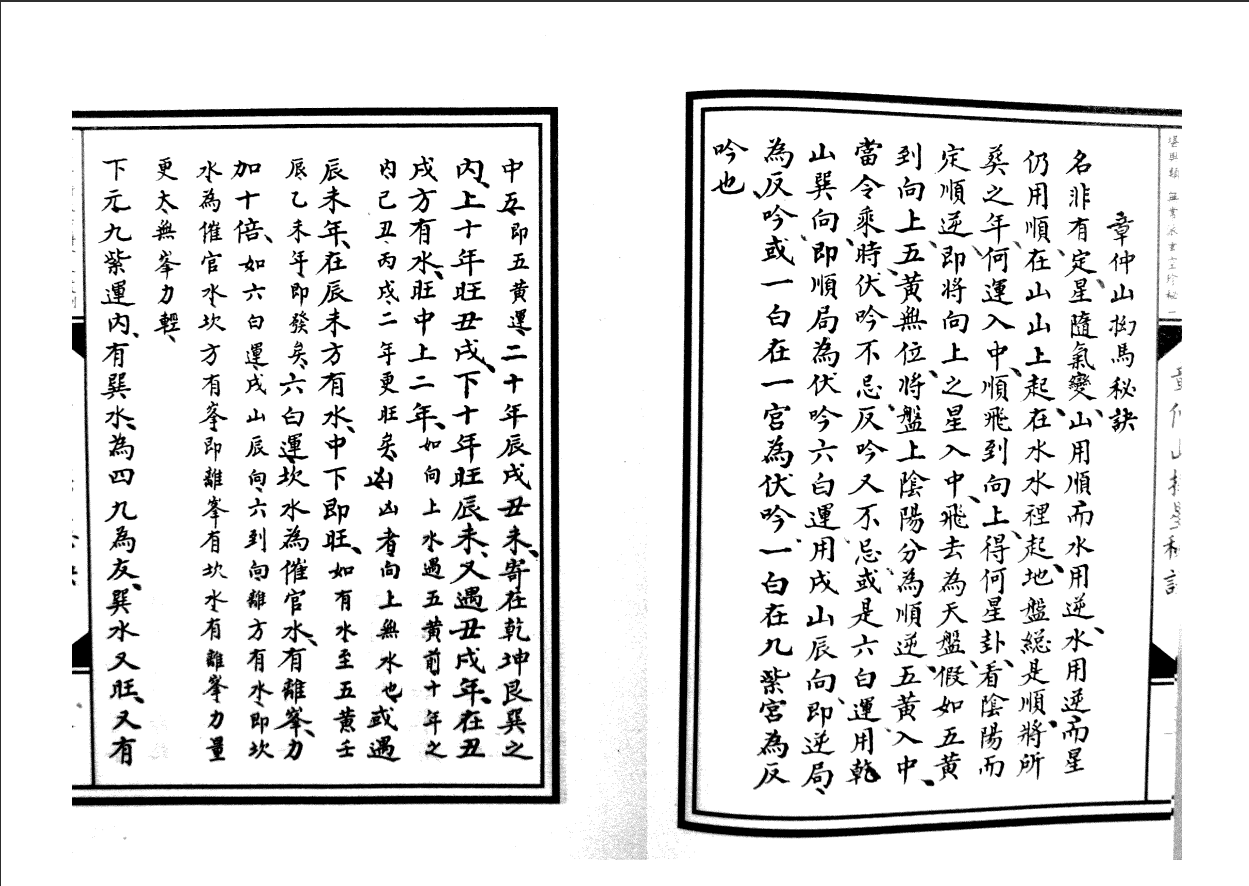 章仲山拗馬秘訣
名非有定、星隨氣變、山用順而水用逆、水用逆而星
仍用順、在山山上起、在水水裡起、地盤總是順、將所
葬之年、何運入中、順飛到向上、得何星卦、看陰陽而
定順逆、即將向上之星入中、飛去為天盤、假如五黃
到向上、五黃無位、將盤上陰陽分為順逆、五黃入中、
當令乘時、伏吟不忌、反吟又不忌、或是六白運、用乾
山巽向、即順局為伏吟、六白運用戌山辰向、即逆局、
為反吟、或一白在一宮為伏吟、一白在九紫宮為反
吟也
中五、即五黃運、二十年辰戌丑未、寄在乾坤艮巽之
內、上十年旺丑戌、下十年旺辰未、又遇丑戌年、在丑
戌方有水、旺中上二年、如向上水遇五黃前十年之
內己丑、丙戌二年更旺矣、凶凶者向上無水也、或遇
辰未年、在辰未方有水、中下即旺、如有水至五黃壬
辰乙未年、即發矣、六白運、坎水為催官水、有離峯、力
加十倍、如六白運、戌山辰向、六到向離方有水、即坎
水為催官水、坎方有峯、即離峯有坎水、有離峯力量
更大、無峯力輕、
下元九紫運內、有巽水、為四九為友、巽水又旺、又有